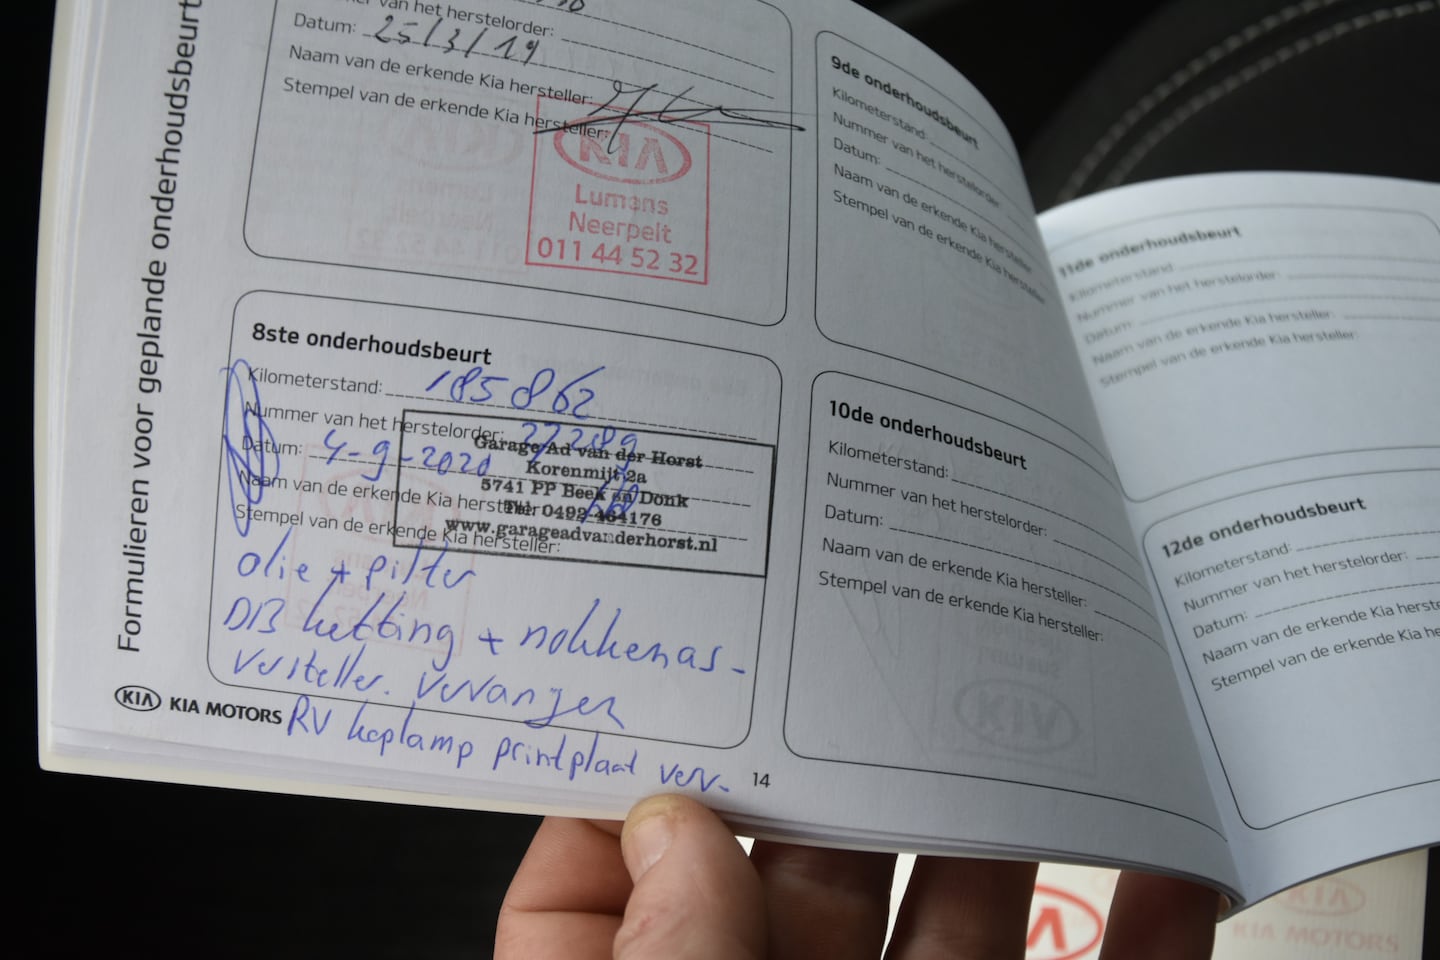 Formulieren voor geplande onderhoudsbeurt
van het herstelorder:
Datum: 25/3/19
Naam van de erkende Kia hersteller:
Stempel van de erkende Kia hersteller:
KIA
Lumens
Neerpelt
011 44 52 32
8ste onderhoudsbeurt
Kilometerstand: 185862
Nummer van het herstelorder: 27289
Datum: 4-9-2020
Naam van de erkende Kia hersteller:
Stempel van de erkende Kia hersteller:
Garage Ad van der Horst
Korenmijt 2a
5741 PP Beek en Donk
Tel: 0492-464176
www.garageadvanderhorst.nl
olie + filter
DIB ketting + nokkenas-
versteller. vervangen
RV koplamp printplaat verv.
KIA KIA MOTORS
14
9de onderhoudsbeurt
Kilometerstand:
Nummer van het herstelorder:
Datum:
Naam van de erkende Kia hersteller
Stempel van de erkende Kia hersteller
10de onderhoudsbeurt
Kilometerstand:
Nummer van het herstelorder:
Datum:
Naam van de erkende Kia hersteller:
Stempel van de erkende Kia hersteller:
11de onderhoudsbeurt
Kilometerstand
Nummer van het herstelorder:
Datum:
Naam van de erkende Kia hersteller:
Stempel van de erkende Kia hersteller:
12de onderhoudsbeurt
Kilometerstand:
Nummer van het herstelorder:
Datum:
Naam van de erkende Kia herste
Stempel van de erkende Kia he
KIA
KIA MOTORS